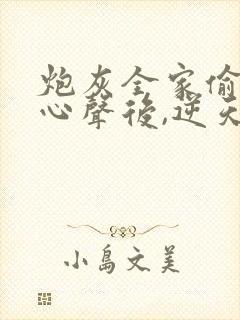 炮灰全家偷
心聲後,逆天
小島文美